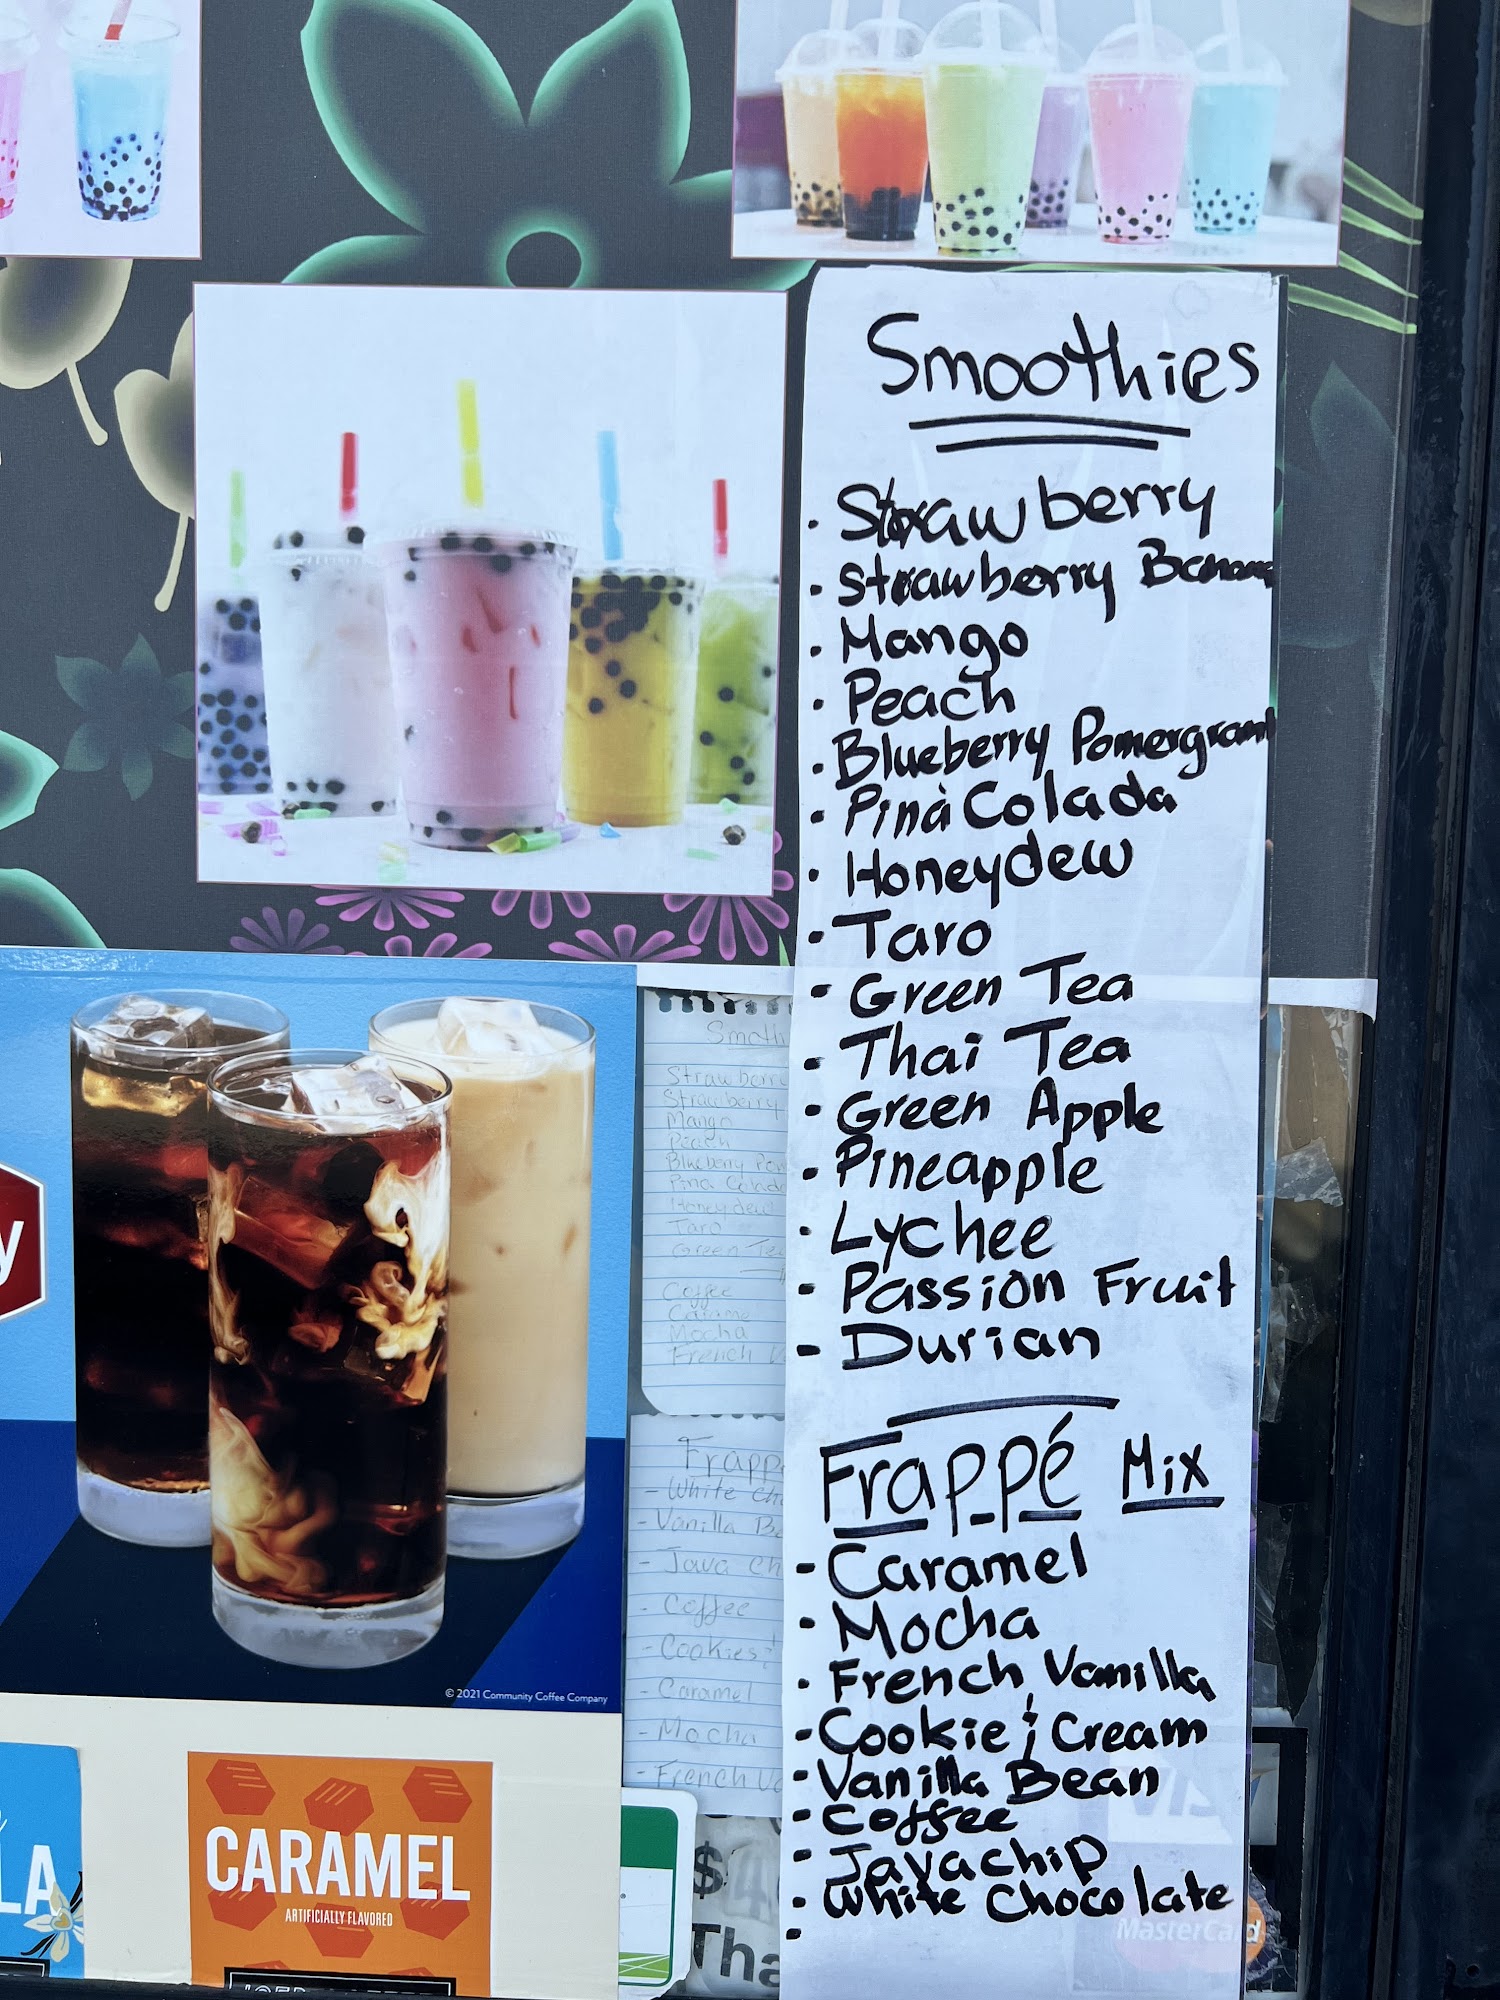 Smoothies
· Strawberry
· Strawberry Banana
· Mango
· Peach
· Blueberry Pomergrant
· Pinà Colada
· Honeydew
· Taro
· Green Tea
· Thai Tea
· Green Apple
· Pineapple
· Lychee
- Passion Fruit
- Durian
Frappé Mix
- Caramel
· Mocha
· French Vanilla
- Cookie & Cream
- Vanilla Bean
- Coffee
- Javachip
· White Chocolate
-
Smoth
Strawberry
Strawberry
Mango
Peach
Blueberry Pom
Pina Colada
Honeydew
Taro
Green Tea
Coffee
Caramel
Mocha
French V
Frapp
- White Ch
- Vanilla Be
- Java Ch
- Coffee
- Cookies
- Caramel
- Mocha
- French Va
y
© 2021 Community Coffee Company
LA
CARAMEL
ARTIFICIALLY FLAVORED
$4
Tha
VISA
MasterCard